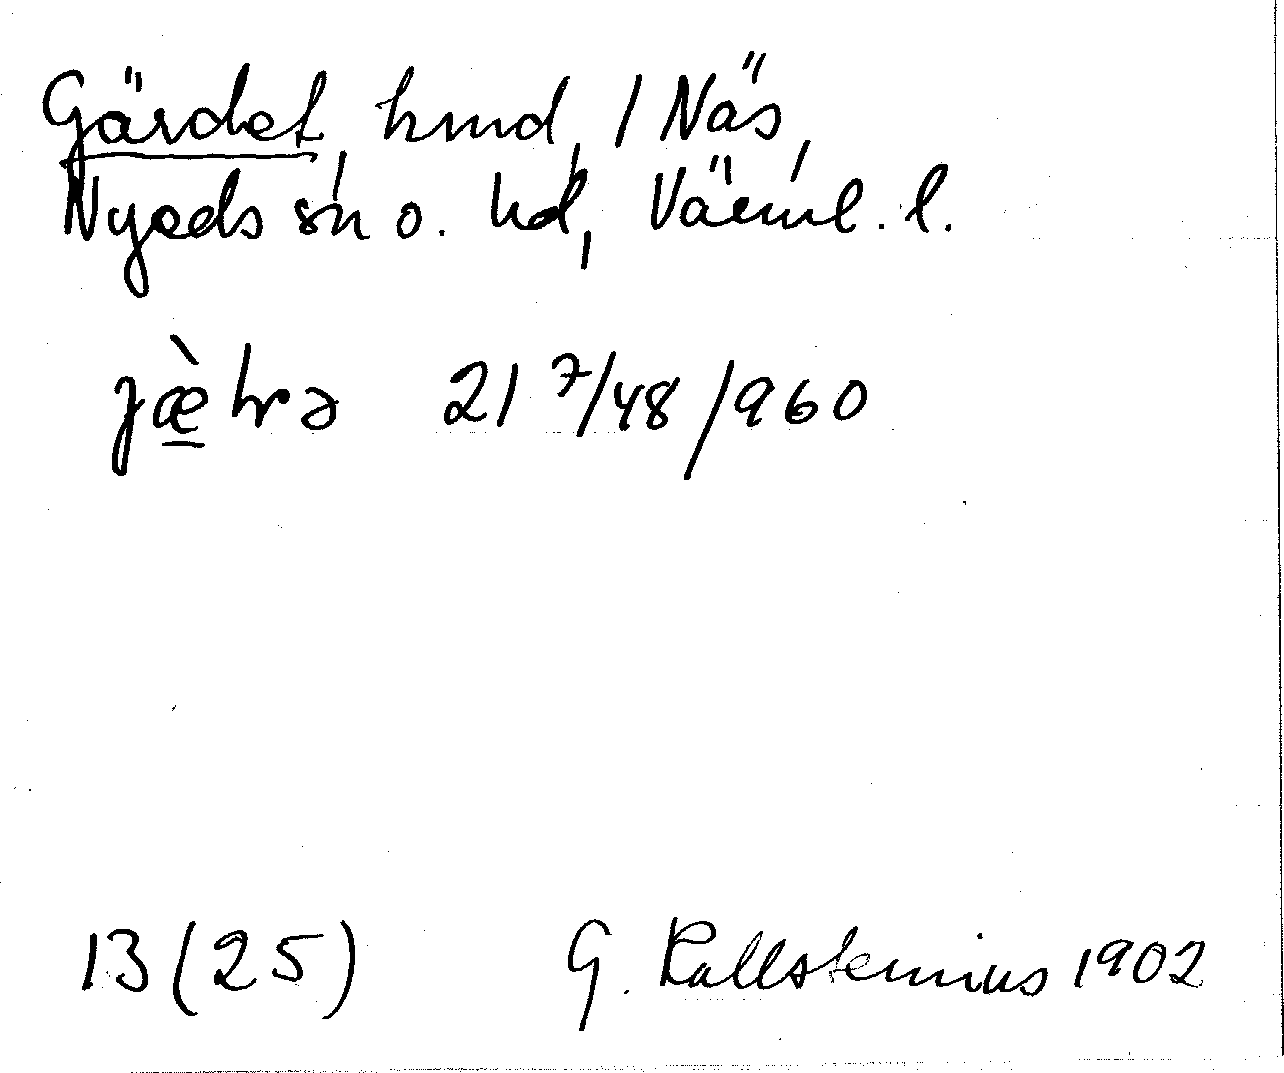 Gärdet, hmd, 1 Näs,
Nyeds sn o. hd, Värml. l.
jæ̲̀hrə 21 7/48/960
13 (25) G. Kallstenius 1902